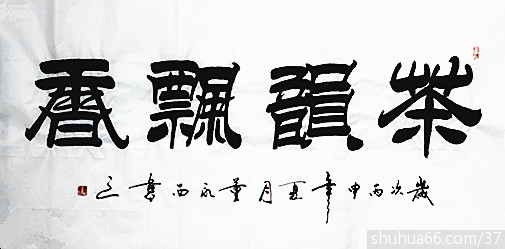 茶韻飄香
歲次丙申年夏月董永西書之
shuhua66.com/37